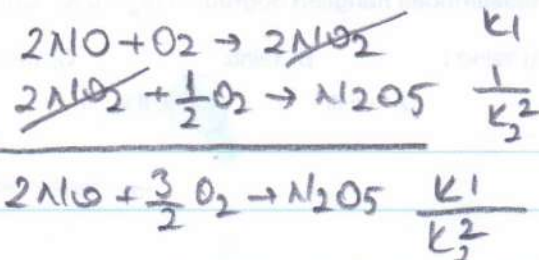 2NO + O2 → 2NO2 K1
2NO2 + 1/2 O2 → N2O5 1/K2^2
2NO + 3/2 O2 → N2O5 K1/K2^2